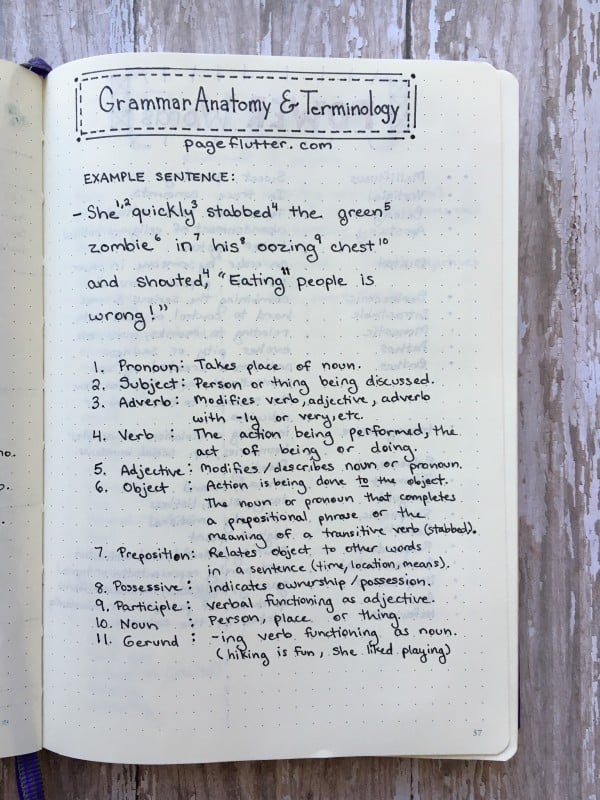 Grammar Anatomy & Terminology
pageflutter.com
EXAMPLE SENTENCE:
- She¹,² quickly³ stabbed⁴ the green⁵
zombie⁶ in⁷ his⁸ oozing⁹ chest¹⁰
and shouted,⁴ "Eating¹¹ people is
wrong!"
1. Pronoun: Takes place of noun.
2. Subject: Person or thing being discussed.
3. Adverb: Modifies verb, adjective, adverb
with -ly or very, etc.
4. Verb : The action being performed, the
act of being or doing.
5. Adjective: Modifies/describes noun or pronoun.
6. Object : Action is being done to the object.
The noun or pronoun that completes
a prepositional phrase or the
meaning of a transitive verb (stabbed).
7. Preposition: Relates object to other words
in a sentence (time, location, means).
8. Possessive: indicates ownership/possession.
9. Participle: verbal functioning as adjective.
10. Noun : Person, place or thing.
11. Gerund : -ing verb functioning as noun.
(hiking is fun, she liked playing)
37